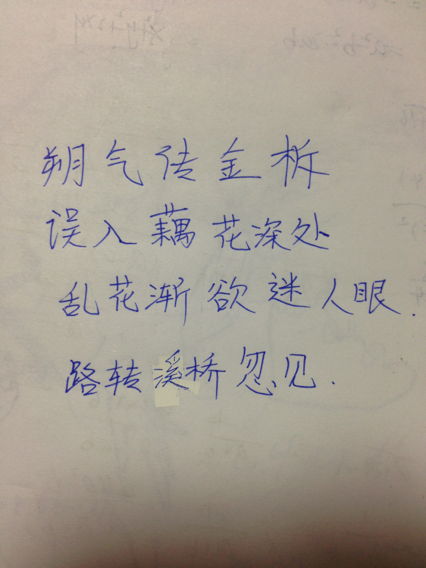 朔气传金柝
误入藕花深处
乱花渐欲迷人眼.
路转溪桥忽见.